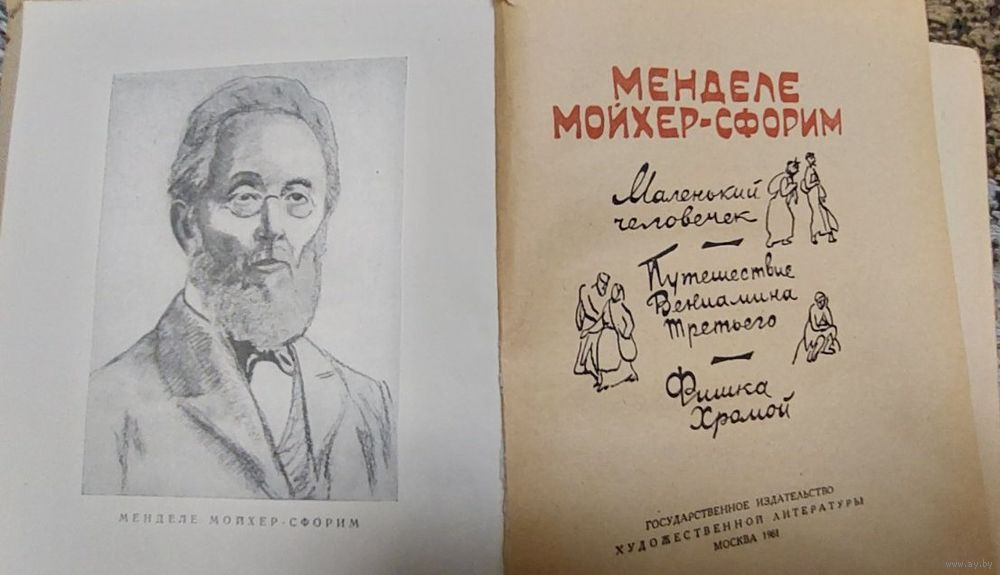 МЕНДЕЛЕ МОЙХЕР-СФОРИМ
МЕНДЕЛЕ
МОЙХЕР-СФОРИМ
Маленький
человечек
Путешествие
Вениамина
Третьего
Фишка
Хромой
ГОСУДАРСТВЕННОЕ ИЗДАТЕЛЬСТВО
ХУДОЖЕСТВЕННОЙ ЛИТЕРАТУРЫ
МОСКВА 1961
www.ay.by